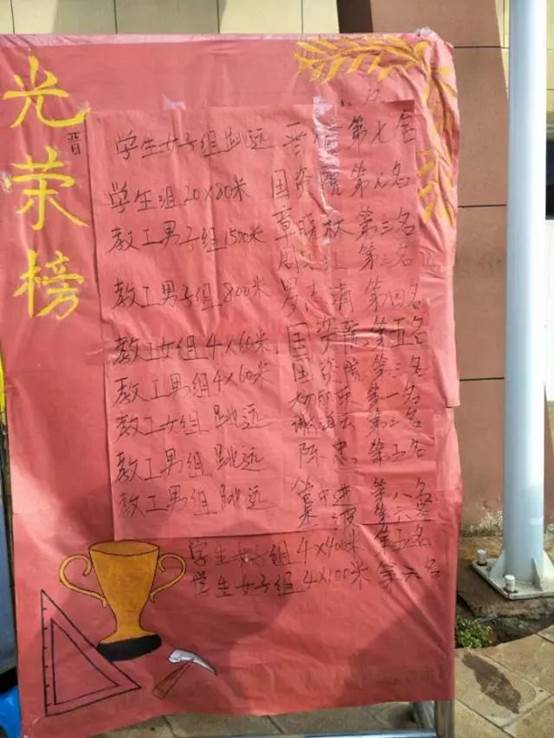 光荣榜
晋
学生女子组跳远 第七名
学生组20×80米 国资院 第九名
教工男子组1500米 覃晓林 第三名
第三名
教工男子组800米 罗志清 第四名
教工女组4×60米 国资院 第五名
教工男组4×60米 国资院 第三名
第一名
教工女组跳远 第二名
教工男组跳远 陈忠 第五名
教工男组跳远 第八名
第六名
学生女子组4×400米 第五名
学生女子组4×100米 第六名